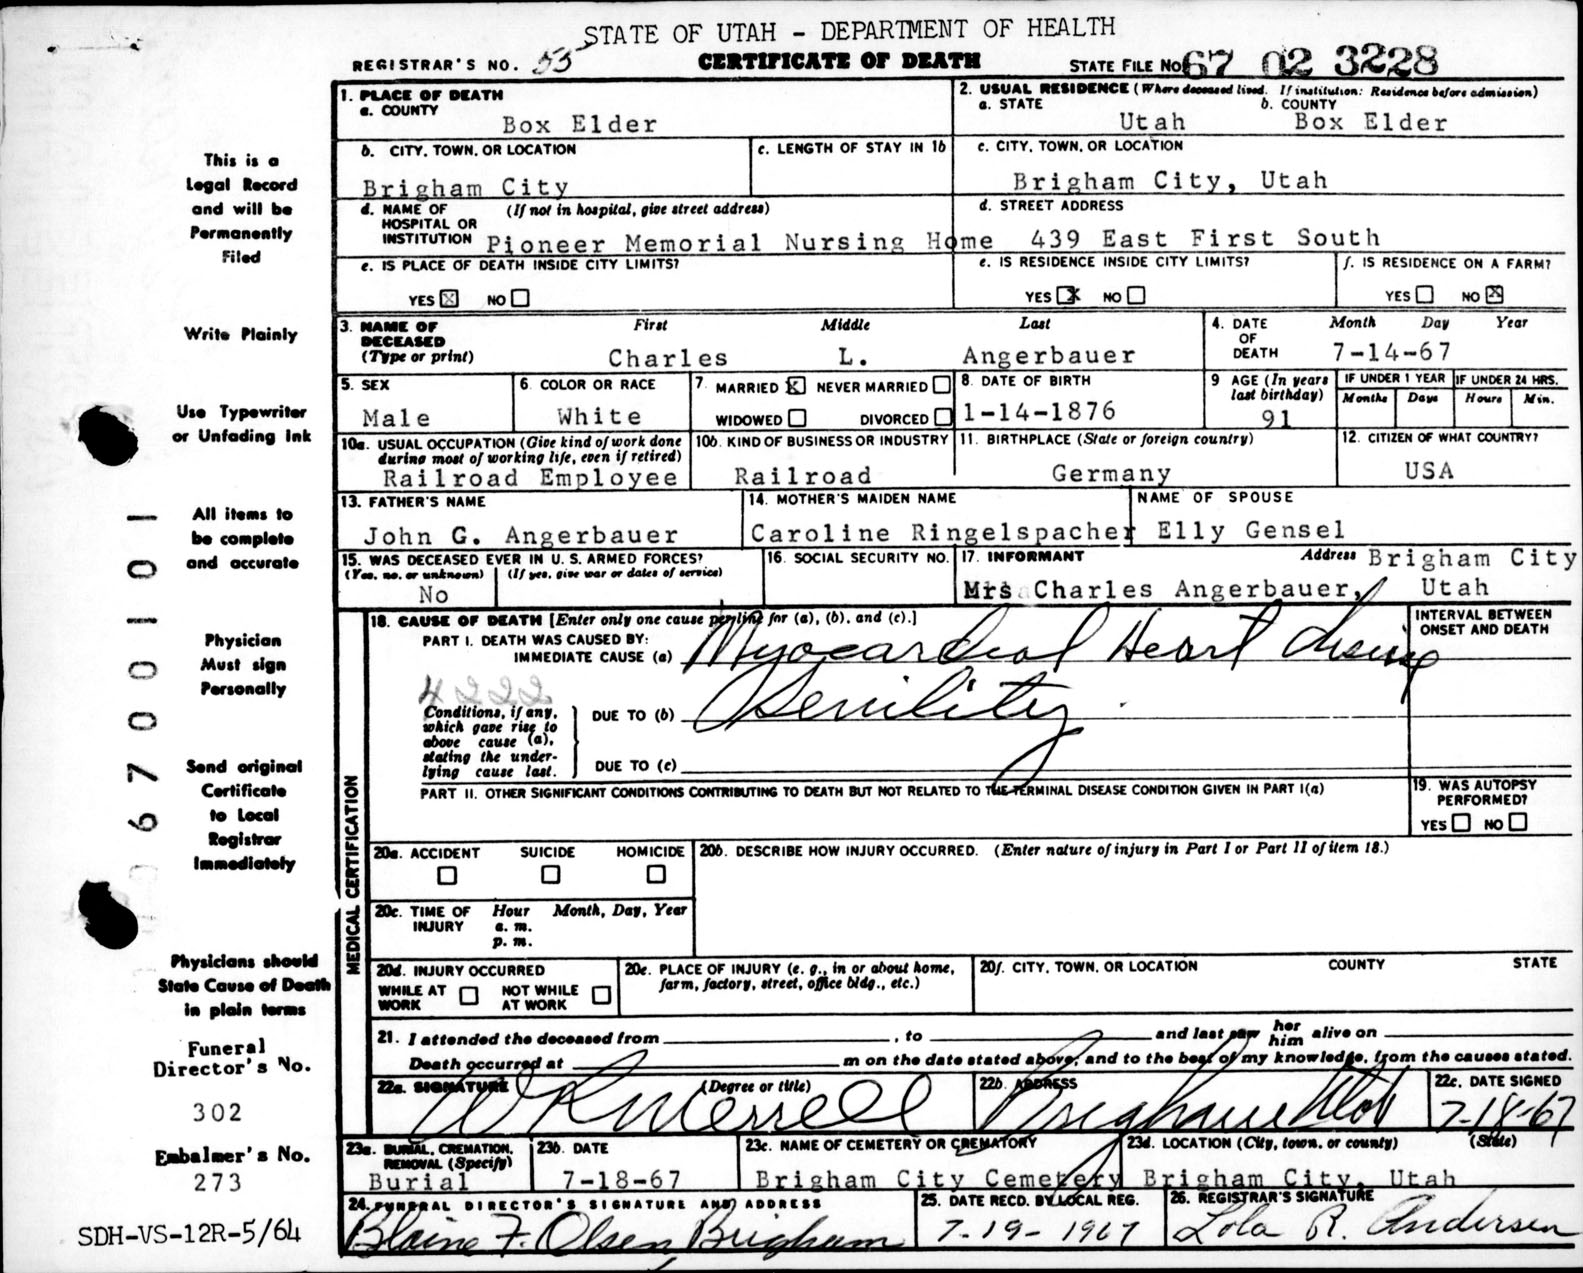 STATE OF UTAH - DEPARTMENT OF HEALTH
REGISTRAR'S NO. 55 CERTIFICATE OF DEATH STATE FILE NO. 67 02 3228
This is a
Legal Record
and will be
Permanently
Filed
Write Plainly
Use Typewriter
or Unfading Ink
All items to
be complete
and accurate
Physician
Must sign
Personally
Send original
Certificate
to Local
Registrar
Immediately
Physicians should
State Cause of Death
in plain terms
Funeral
Director's No.
302
Embalmer's No.
273
SDH-VS-12R-5/64
06700101
1. PLACE OF DEATH
a. COUNTY
Box Elder
2. USUAL RESIDENCE (Where deceased lived. If institution: Residence before admission)
a. STATE b. COUNTY
Utah Box Elder
b. CITY, TOWN, OR LOCATION
Brigham City
c. LENGTH OF STAY IN 1b
c. CITY, TOWN, OR LOCATION
Brigham City, Utah
d. NAME OF (If not in hospital, give street address)
HOSPITAL OR
INSTITUTION Pioneer Memorial Nursing Home
d. STREET ADDRESS
439 East First South
e. IS PLACE OF DEATH INSIDE CITY LIMITS?
YES X NO
e. IS RESIDENCE INSIDE CITY LIMITS?
YES X NO
f. IS RESIDENCE ON A FARM?
YES NO X
3. NAME OF First Middle Last
DECEASED
(Type or print) Charles L. Angerbauer
4. DATE Month Day Year
OF
DEATH 7-14-67
5. SEX
Male
6. COLOR OR RACE
White
7. MARRIED X NEVER MARRIED
WIDOWED DIVORCED
8. DATE OF BIRTH
1-14-1876
9. AGE (In years
last birthday)
91
IF UNDER 1 YEAR IF UNDER 24 HRS.
Months Days Hours Min.
10a. USUAL OCCUPATION (Give kind of work done
during most of working life, even if retired)
Railroad Employee
10b. KIND OF BUSINESS OR INDUSTRY
Railroad
11. BIRTHPLACE (State or foreign country)
Germany
12. CITIZEN OF WHAT COUNTRY?
USA
13. FATHER'S NAME
John G. Angerbauer
14. MOTHER'S MAIDEN NAME
Caroline Ringelspacher
NAME OF SPOUSE
Elly Gensel
15. WAS DECEASED EVER IN U. S. ARMED FORCES?
(Yes, no, or unknown) (If yes, give war or dates of service)
No
16. SOCIAL SECURITY NO.
17. INFORMANT Address Brigham City
Mrs Charles Angerbauer, Utah
18. CAUSE OF DEATH [Enter only one cause per line for (a), (b), and (c).]
INTERVAL BETWEEN
ONSET AND DEATH
PART I. DEATH WAS CAUSED BY:
IMMEDIATE CAUSE (a) Myocardial Heart
4222
Conditions, if any,
which gave rise to
above cause (a),
stating the under-
lying cause last.
DUE TO (b) Senility
DUE TO (c)
PART II. OTHER SIGNIFICANT CONDITIONS CONTRIBUTING TO DEATH BUT NOT RELATED TO THE TERMINAL DISEASE CONDITION GIVEN IN PART I(a)
19. WAS AUTOPSY
PERFORMED?
YES NO
MEDICAL CERTIFICATION
20a. ACCIDENT SUICIDE HOMICIDE
20b. DESCRIBE HOW INJURY OCCURRED. (Enter nature of injury in Part I or Part II of item 18.)
20c. TIME OF Hour Month, Day, Year
INJURY a. m.
p. m.
20d. INJURY OCCURRED
WHILE AT NOT WHILE
WORK AT WORK
20e. PLACE OF INJURY (e. g., in or about home,
farm, factory, street, office bldg., etc.)
20f. CITY, TOWN, OR LOCATION COUNTY STATE
21. I attended the deceased from , to and last saw her him alive on
Death occurred at m on the date stated above, and to the best of my knowledge, from the causes stated.
22a. SIGNATURE (Degree or title)
W R Merrell
22b. ADDRESS
Brigham Utah
22c. DATE SIGNED
7-18-67
23a. BURIAL, CREMATION,
REMOVAL (Specify)
Burial
23b. DATE
7-18-67
23c. NAME OF CEMETERY OR CREMATORY
Brigham City Cemetery
23d. LOCATION (City, town, or county) (State)
Brigham City, Utah
24. FUNERAL DIRECTOR'S SIGNATURE AND ADDRESS
Blaine F. Olsen, Brigham
25. DATE RECD. BY LOCAL REG.
7-19-1967
26. REGISTRAR'S SIGNATURE
Lola R. Andersen